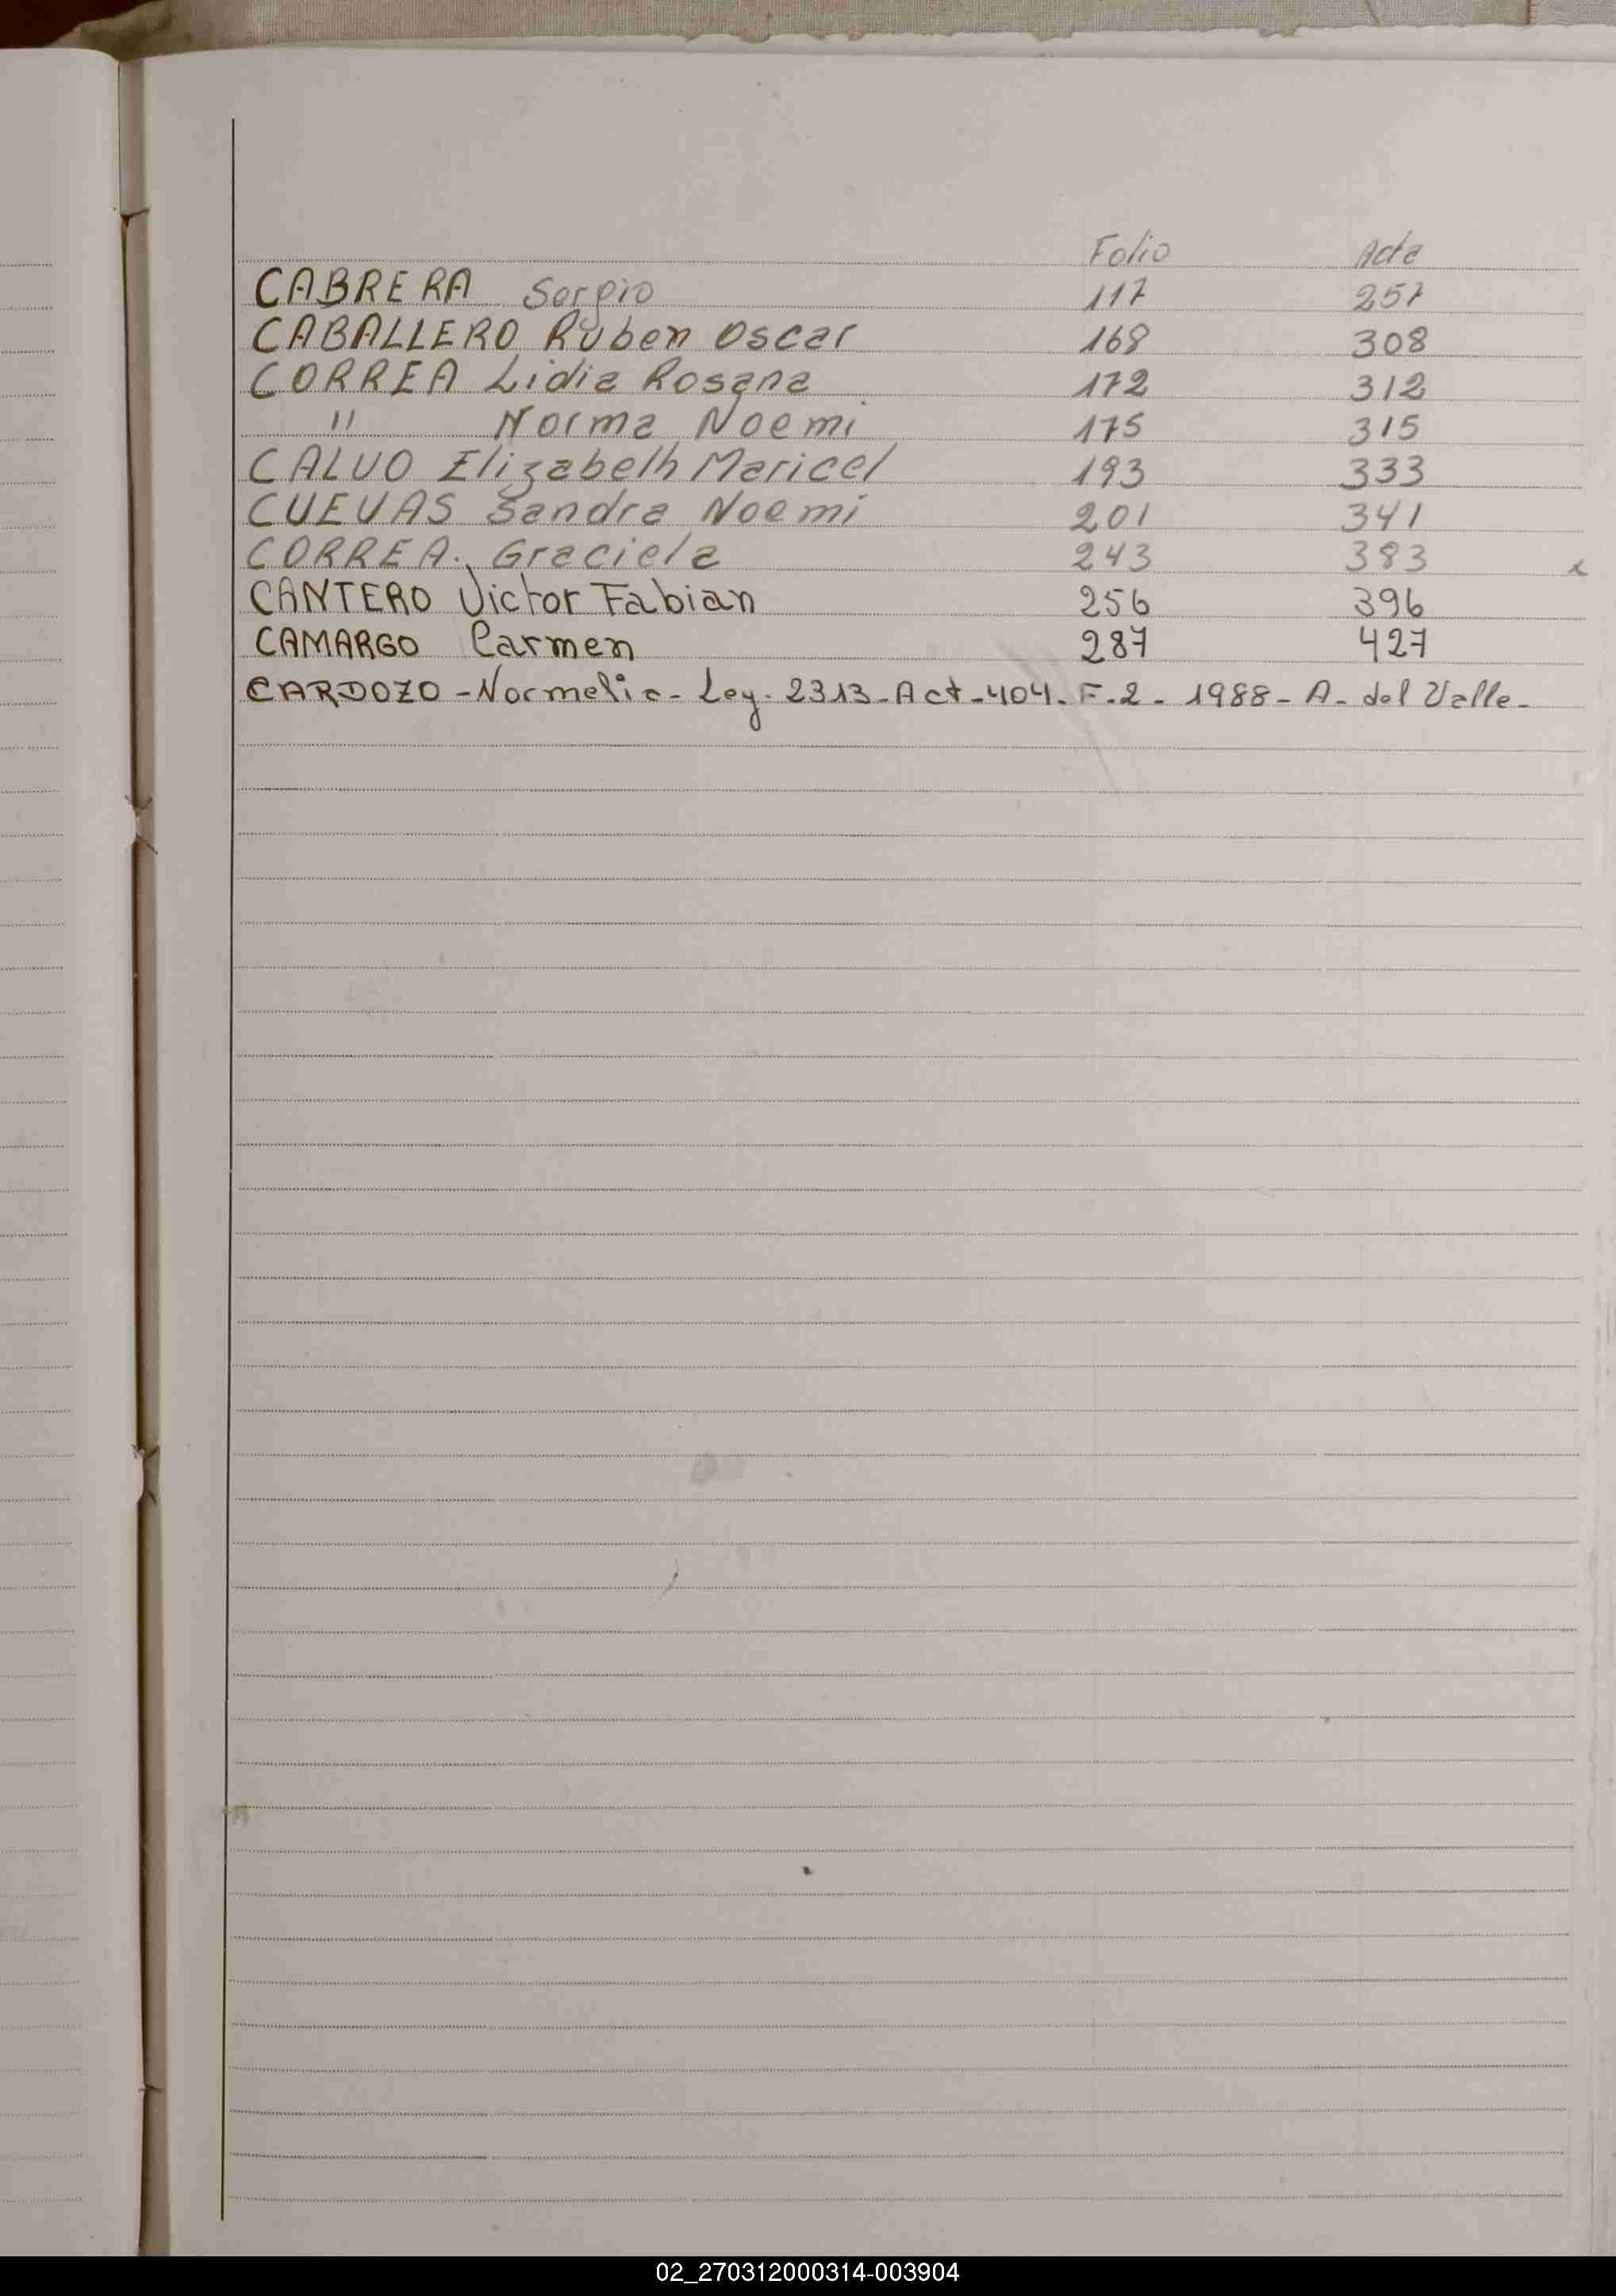 Folio Acta
CABRERA Sergio 117 257
CABALLERO Ruben Oscar 168 308
CORREA Lidia Rosana 172 312
" Norma Noemi 175 315
CALVO Elizabeth Maricel 193 333
CUEVAS Sandra Noemi 201 341
CORREA. Graciela 243 383
CANTERO Victor Fabian 256 396
CAMARGO Carmen 287 427
CARDOZO - Normelia - Ley. 2313 - Act - 404. F. 2 - 1988 - A - del Valle -
02_270312000314-003904